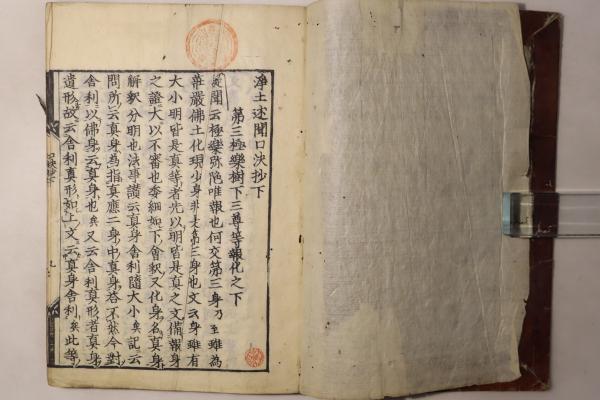 淨土述聞口決抄下
第三極樂樹下三尊等報化之下
述聞云極樂弥陀唯報也何交第三身乃至雖為
華嚴佛土化現少身非丈第三身也文云身雖有
大小明皆是真等者先以明皆是真之文備報身
之證大以不審也委細如下會釈又化身名真身
解釈分明也法事讃云真身舍利隨大小矣記云
問所云真身為指真應二身中真身答不然今對
舍利以佛身云真身也矣又云舍利真形者真身
遺形故云舍利真形如上文云真身舍利矣此等